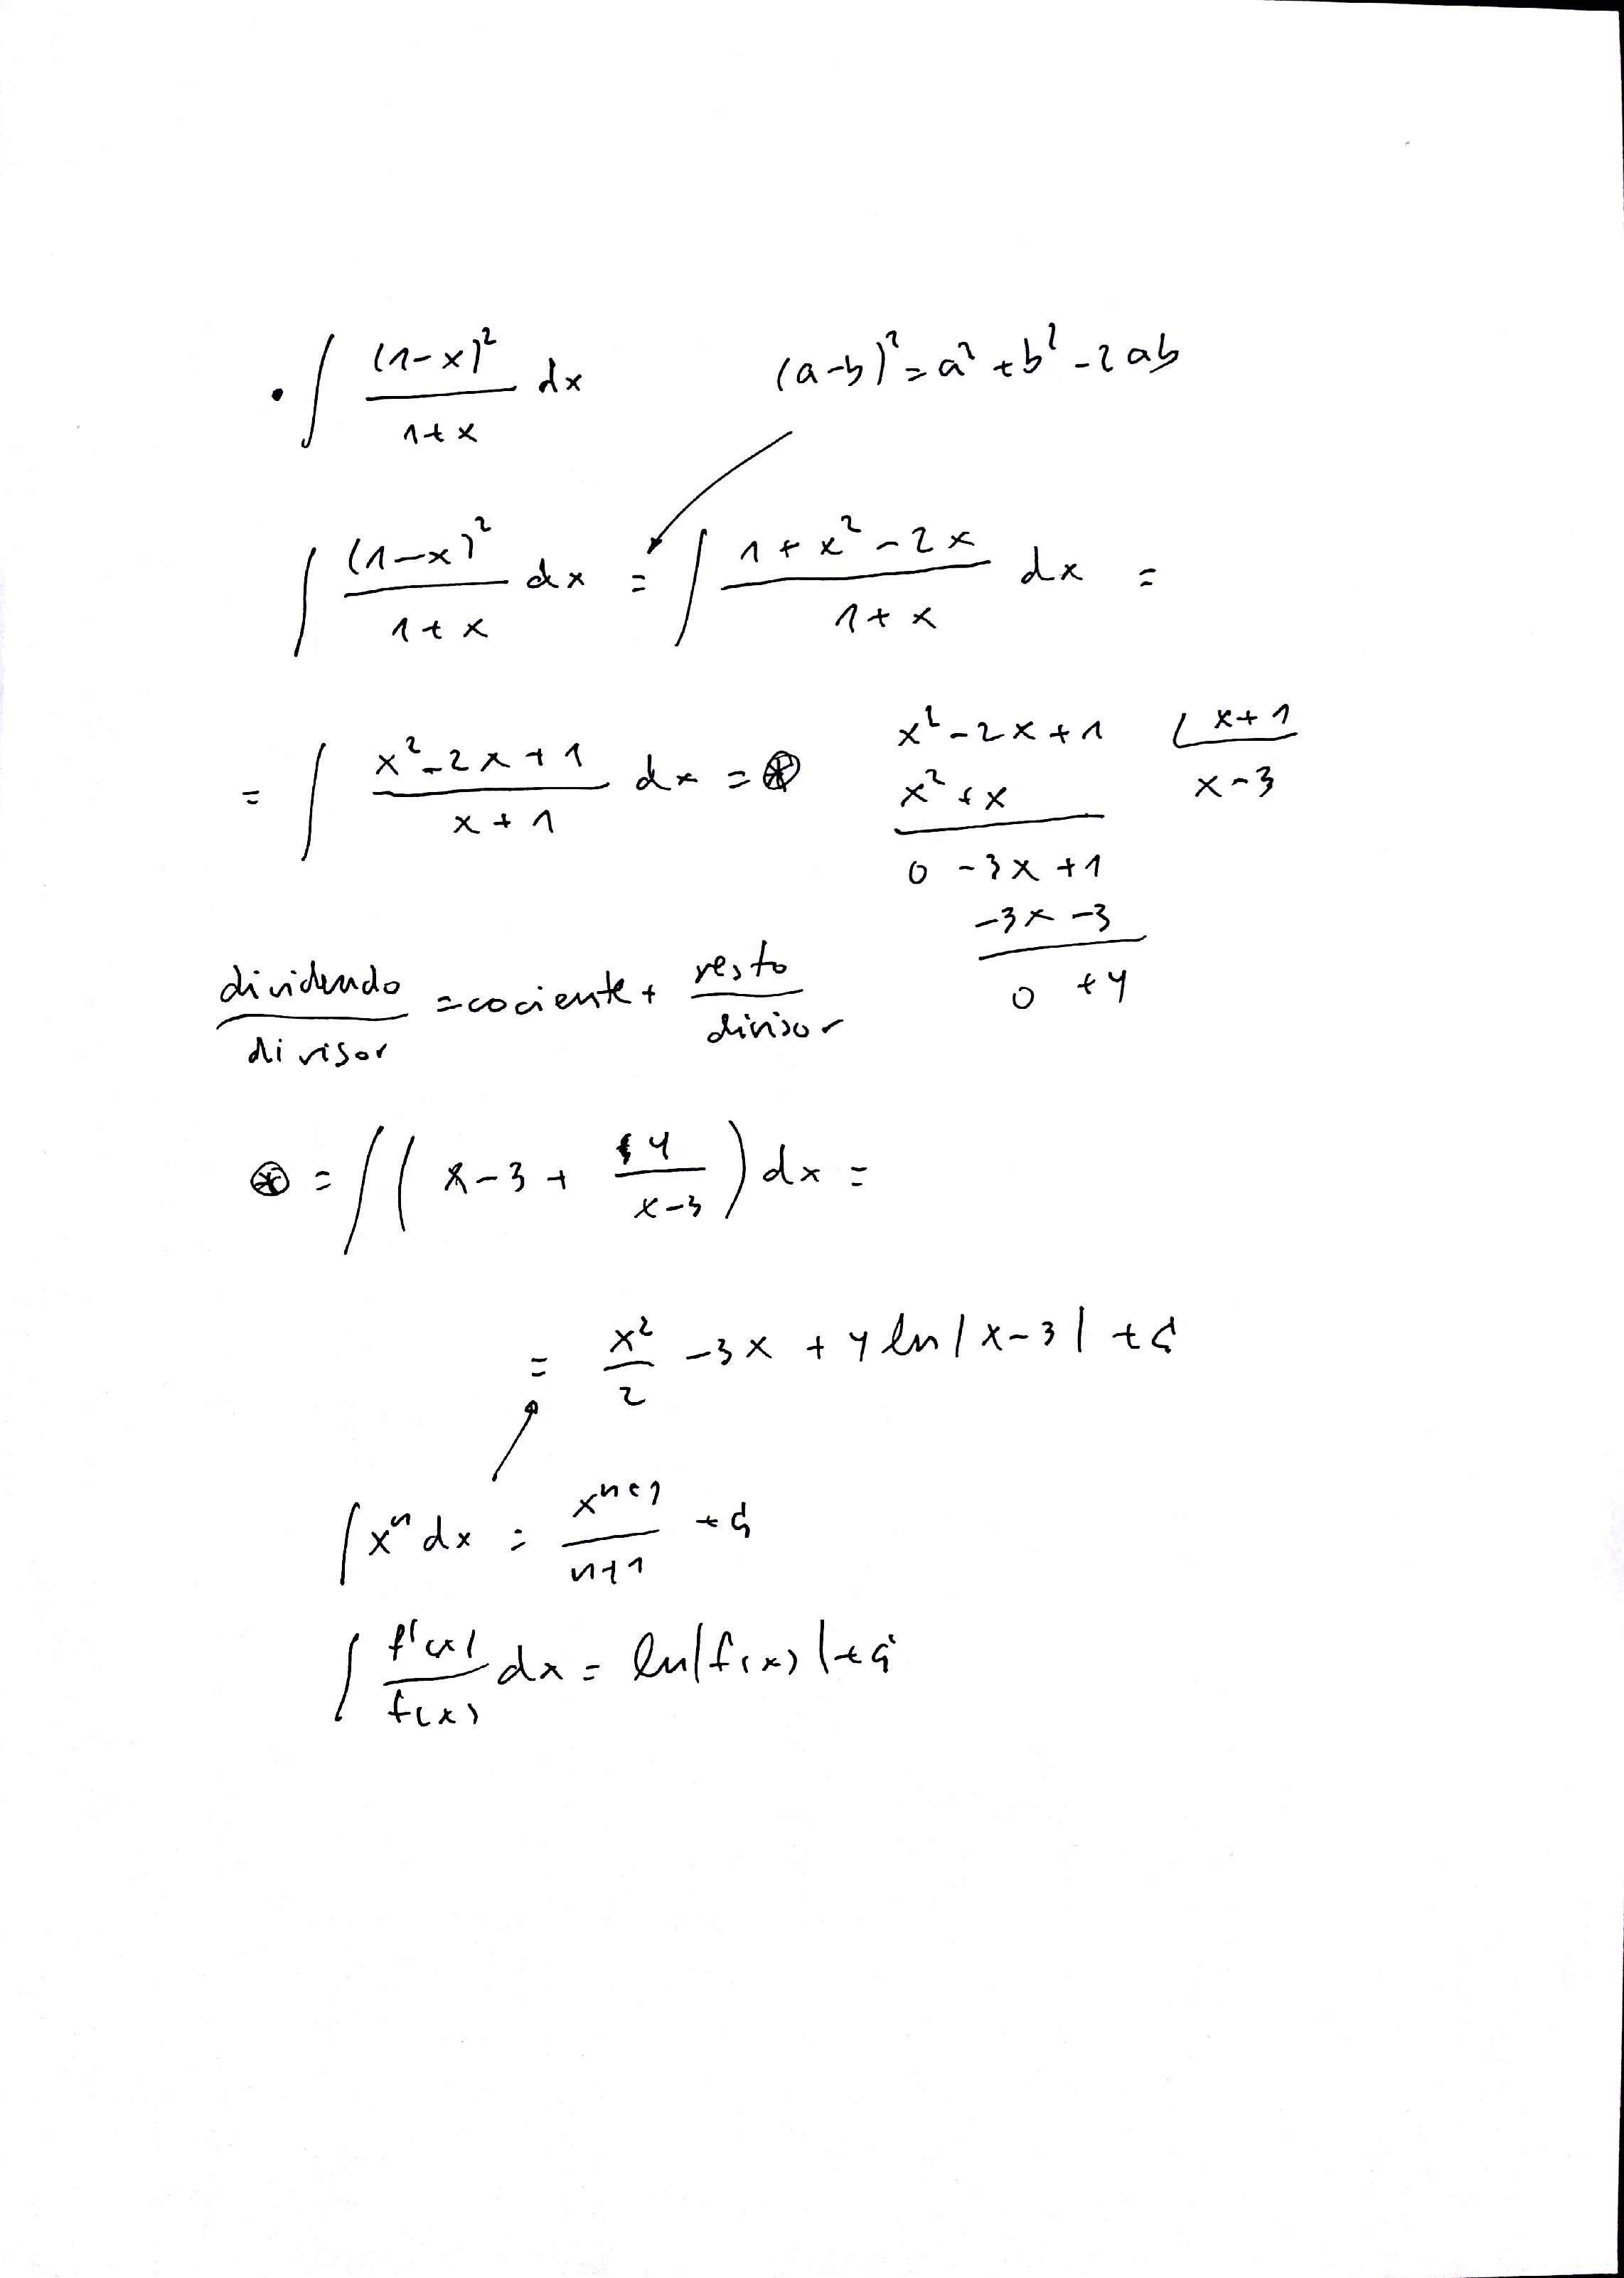 • ∫ (1-x)² / 1+x dx (a-b)² = a² + b² - 2ab
∫ (1-x)² / 1+x dx = ∫ 1+x²-2x / 1+x dx =
= ∫ x²-2x+1 / x+1 dx = ⊛
x²-2x+1 | x+1
x²+x x-3
0 -3x+1
-3x-3
0 +4
dividendo / divisor = cociente + resto / divisor
⊛ = ∫ ( x-3 + +4 / x-3 ) dx =
= x² / 2 - 3x + 4 ln|x-3| + C
∫ xⁿ dx = xⁿ⁺¹ / n+1 + C
∫ f'(x) / f(x) dx = ln|f(x)| + C